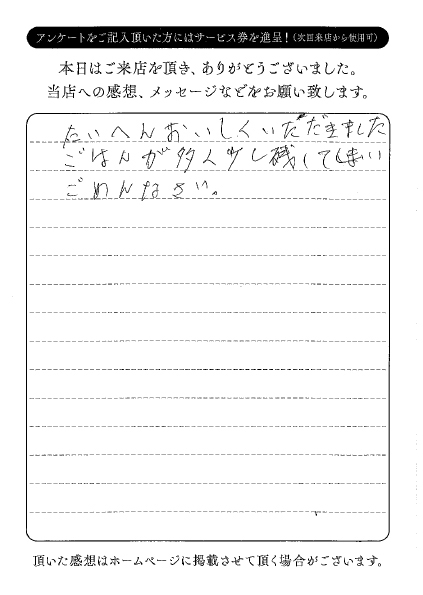 アンケートをご記入頂いた方にはサービス券を進呈！（次回来店から使用可）
本日はご来店を頂き、ありがとうございました。
当店への感想、メッセージなどをお願い致します。
たいへんおいしくいただきました
ごはんが多く少し残してしまい
ごめんなさい。
頂いた感想はホームページに掲載させて頂く場合がございます。